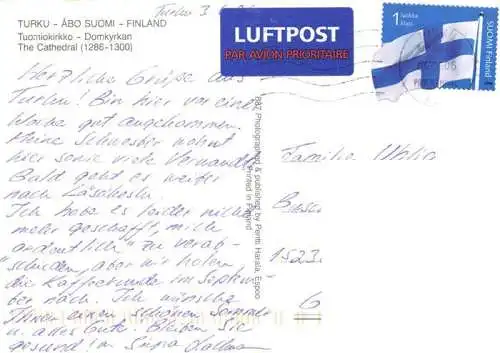 TURKU - ÅBO SUOMI - FINLAND
Tuomiokirkko - Domkyrkan
The Cathedral (1286-1300)
Turku 3.
LUFTPOST
PAR AVION PRIORITAIRE
1 luokka
klass
SUOMI FINLAND
Herzliche Grüße aus
Turku! Bin hier vor einer
Woche gut angekommen.
Meine Schwester wohnt
hier sowie viele Verwandte.
Bald geht es weiter
nach
Ich habe es leider nicht
mehr geschafft, mich
"ordentlich" zu verab-
schieden, aber wir holen
die Kaffeerunde im Septem-
ber nach. Ich wünsche
Ihnen einen schönen Sommer
u. alles Gute. Bleiben Sie
gesund!
687 Photographed & published by Pentti Harala, Espoo
Printed in Finland
Familie
1523
G